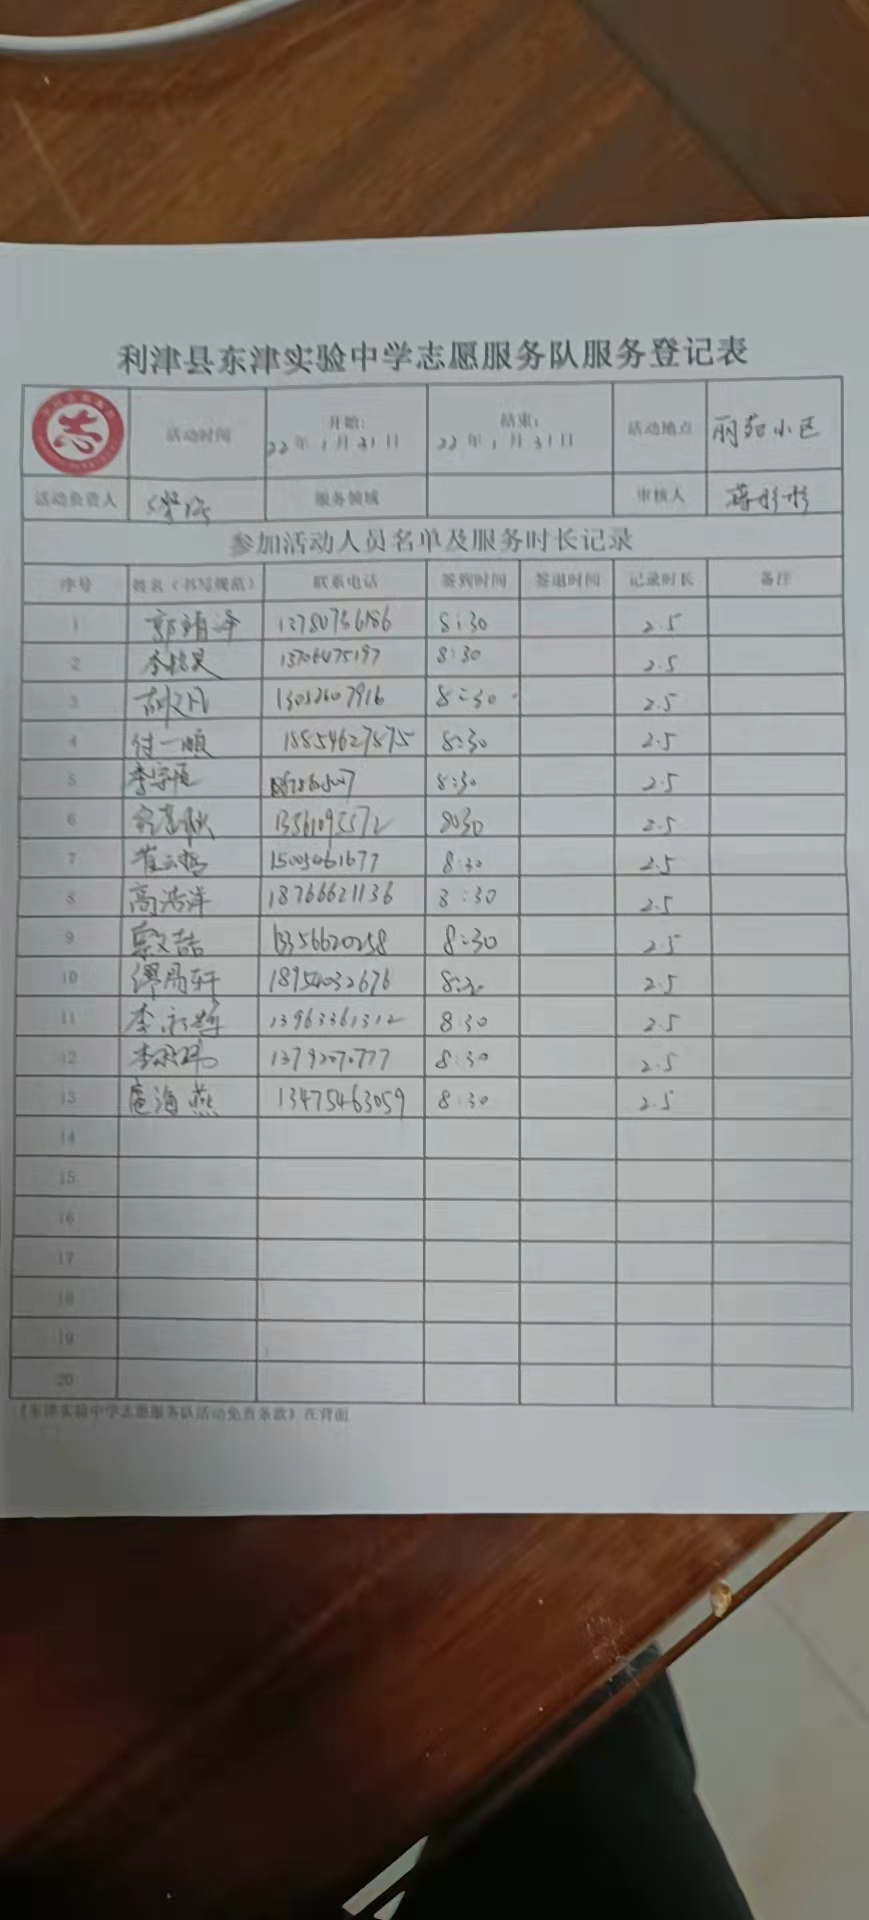 利津县东津实验中学志愿服务队服务登记表
活动时间 开始: 22年1月31日 结束: 22年1月31日 活动地点 丽苑小区
活动负责人 服务领域 审核人 蒋彤彤
参加活动人员名单及服务时长记录
序号 姓名（书写规范） 联系电话 签到时间 签退时间 记录时长 备注
1 郭靖泽 12780736186 8:30 2.5
2 13706475197 8:30 2.5
3 胡又凡 13052607916 8:30 2.5
4 付一顺 18854627875 8:30 2.5
5 李宗恒 8:30 2.5
6 13561095572 8:30 2.5
7 崔云哲 15005461677 8:30 2.5
8 高浩洋 18766621136 8:30 2.5
9 13356620258 8:30 2.5
10 缪周轩 18954032676 8:30 2.5
11 13963361312 8:30 2.5
12 13792070777 8:30 2.5
13 扈海燕 13475463059 8:30 2.5
14
15
16
17
18
19
20
《东津实验中学志愿服务队活动免责条款》在背面